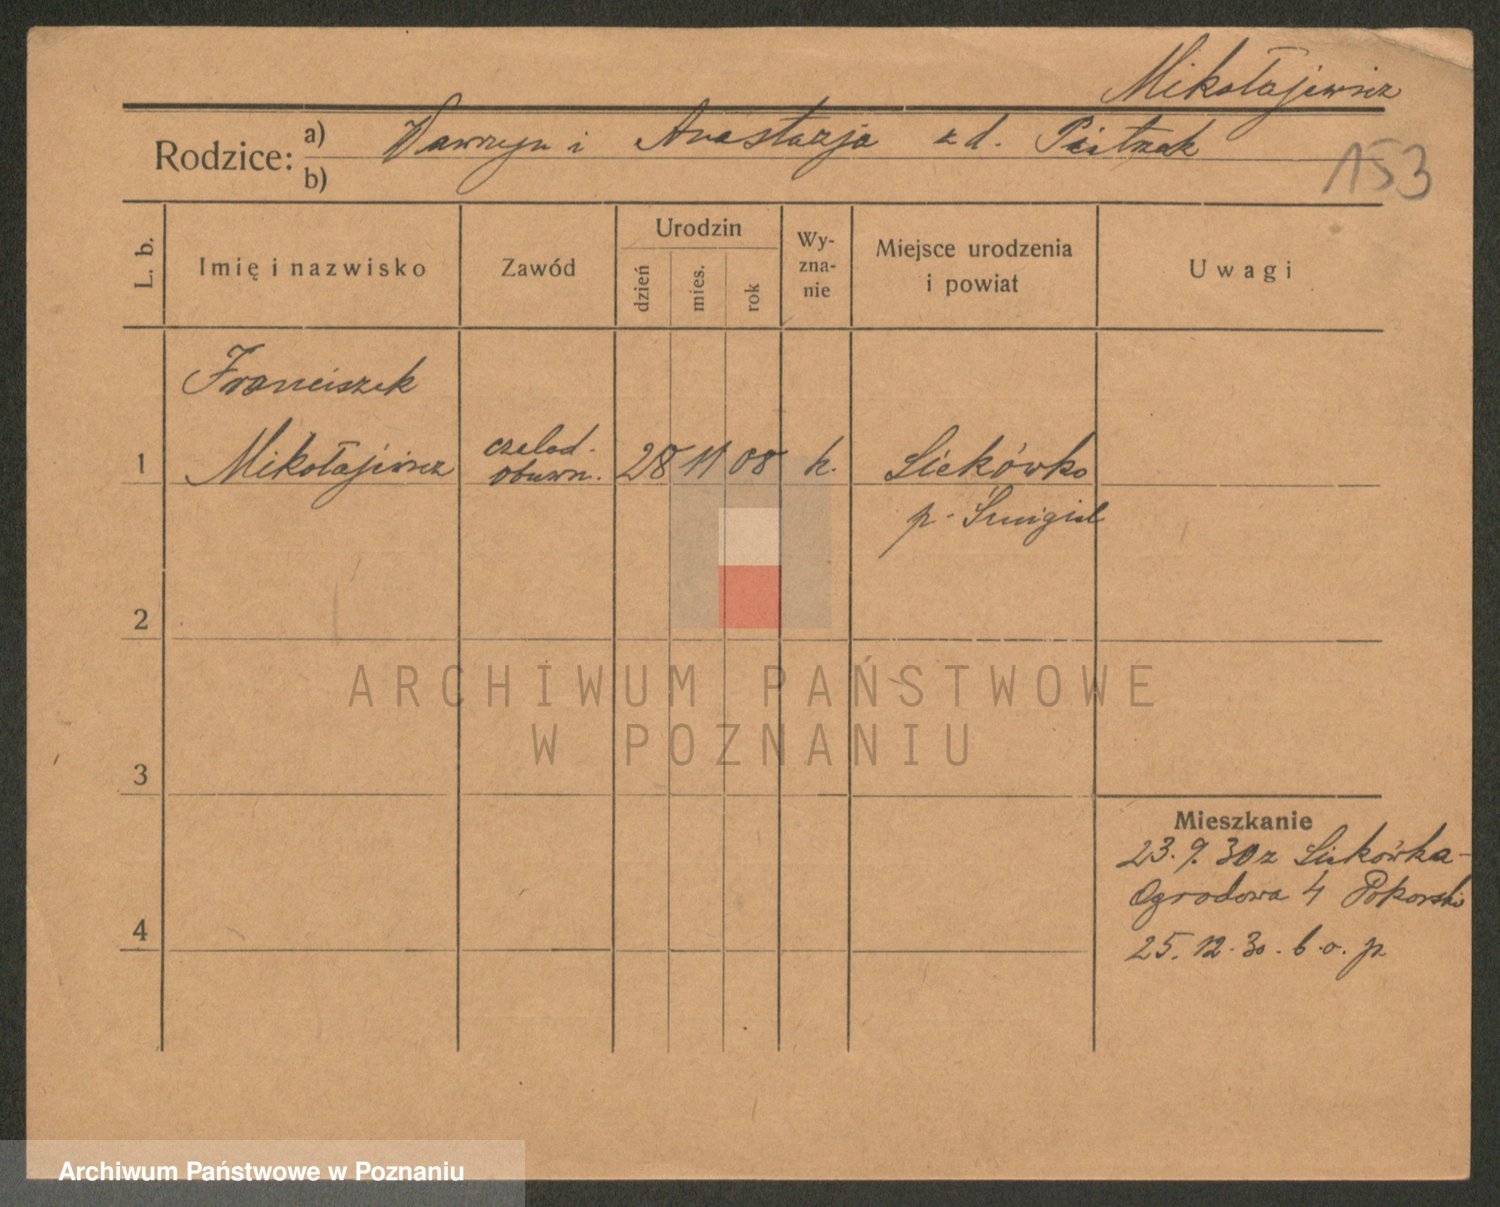 Mikołajewicz
Rodzice: a) Wawrzyn i Anastazja z d. Pietrzak
b)
153
L. b.
Imię i nazwisko
Zawód
Urodzin
dzień
mies.
rok
Wy-
zna-
nie
Miejsce urodzenia
i powiat
Uwagi
Franciszek
1 Mikołajewicz czelad. obuwn. 28 11 08 k. Siekówko
p. Śmigiel
2
ARCHIWUM PAŃSTWOWE
W POZNANIU
3
Mieszkanie
23. 9. 30 z Siekówka-
Ogrodowa 4 Pokorski
4
25. 12. 30. b. o. p
Archiwum Państwowe w Poznaniu